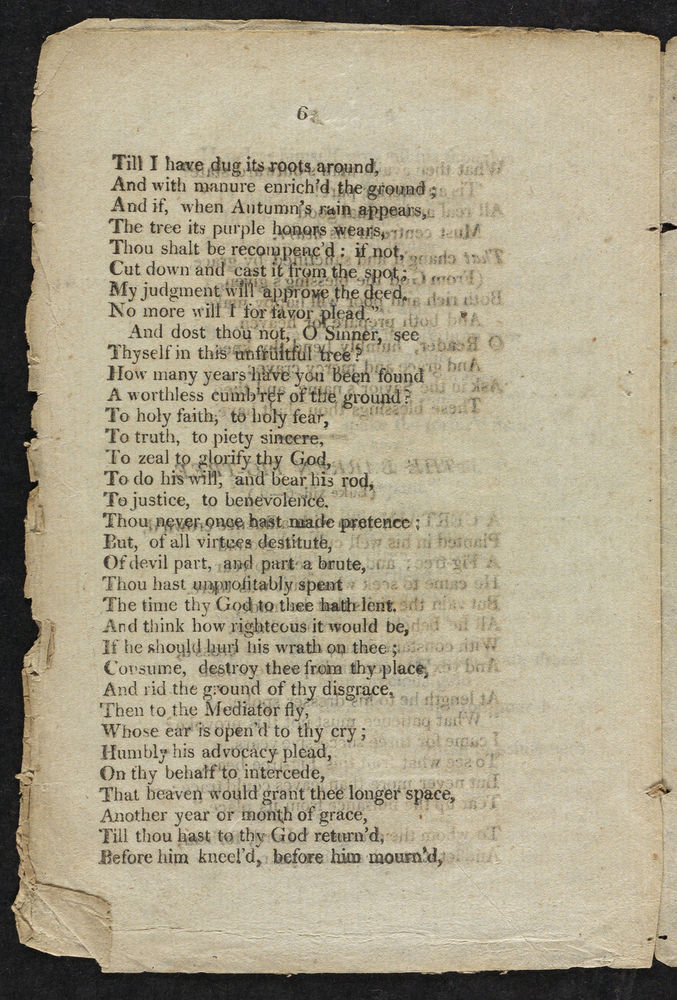 6
Till I have dug its roots around,
And with manure enrich'd the ground;
And if, when Autumn's rain appears,
The tree its purple honors wears,
Thou shalt be recompenc'd: if not,
Cut down and cast it from the spot;
My judgment will approve the deed,
No more will I for favor plead."
And dost thou not, O Sinner, see
Thyself in this unfruitful tree?
How many years have you been found
A worthless cumb'rer of the ground?
To holy faith, to holy fear,
To truth, to piety sincere,
To zeal to glorify thy God,
To do his will, and bear his rod,
To justice, to benevolence,
Thou never once hast made pretence;
But, of all virtues destitute,
Of devil part, and part a brute,
Thou hast unprofitably spent
The time thy God to thee hath lent.
And think how righteous it would be,
If he should hurl his wrath on thee;
Consume, destroy thee from thy place,
And rid the ground of thy disgrace.
Then to the Mediator fly,
Whose ear is open'd to thy cry;
Humbly his advocacy plead,
On thy behalf to intercede,
That heaven would grant thee longer space,
Another year or month of grace,
Till thou hast to thy God return'd,
Before him kneel'd, before him mourn'd,